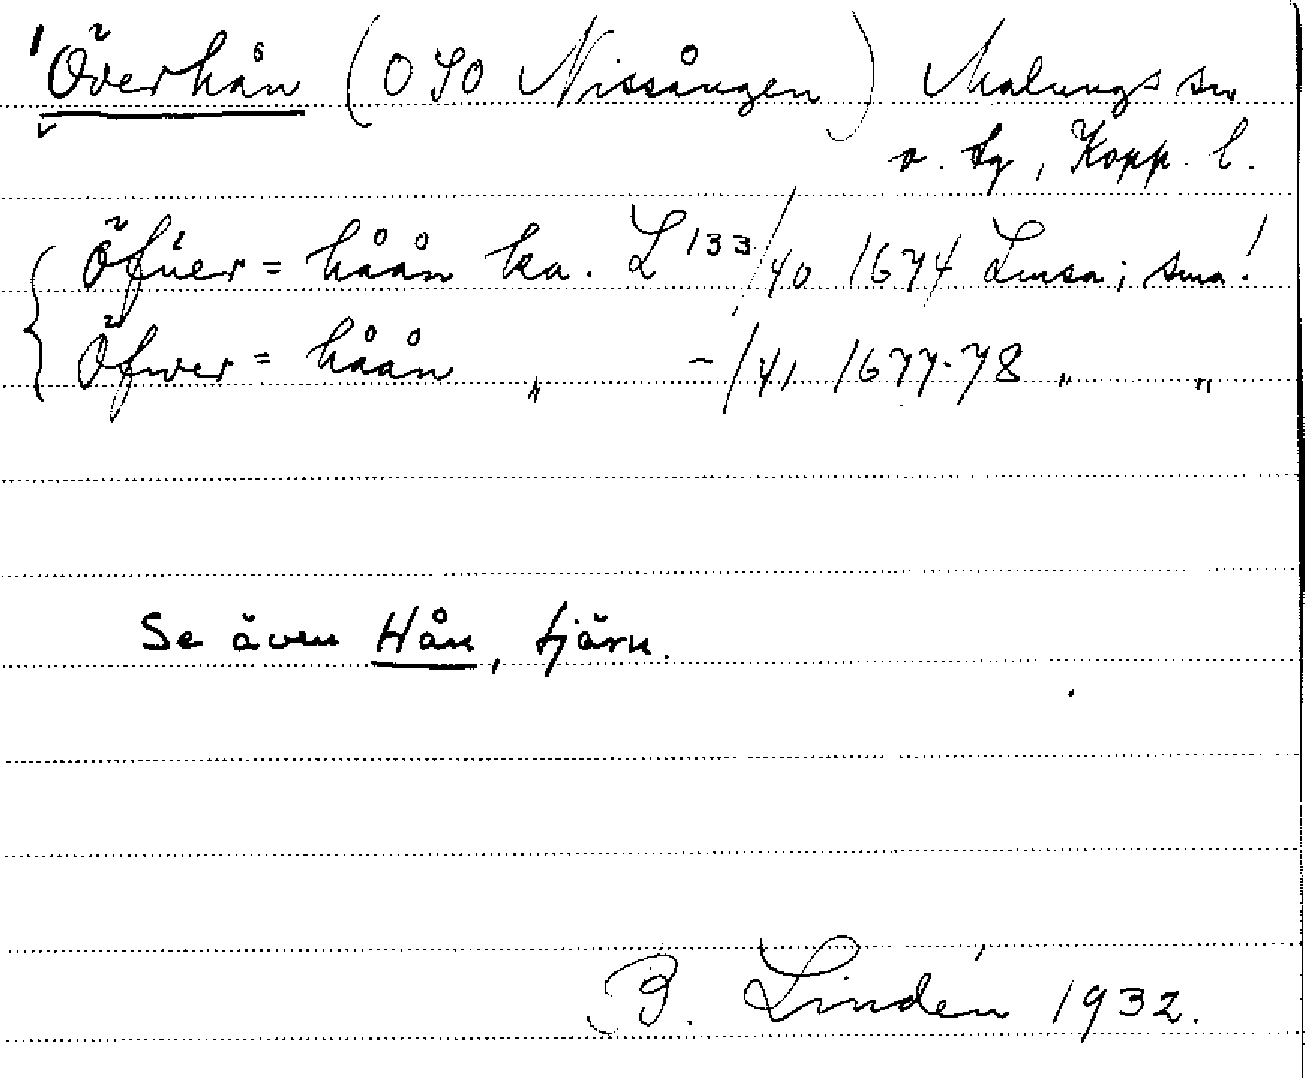 Överhån (OSO Nissången) Malungs sn
o. tg, Kopp. l.
Öfuer = håån ka. L 133/40 1674 Lmsa; sma!
Öfwer = håån „ -/41 1677-78 „ „
Se även Hån, tjärn.
B. Lindén 1932.